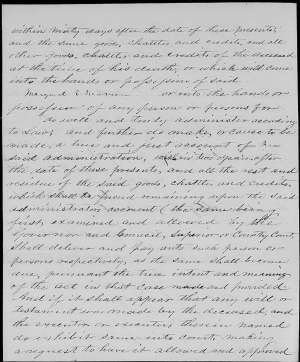 within Ninety days after the date of these presents;
and the same goods, chattles and credits, and all
other goods, chattles and credits of the deceased
at the time of his death, or which will come
into the hands or possession of said
Margaret E. or into the hands or
possession of any person or persons for
do well and truly administer according
to law; and further do make, or cause to be
made, a true and just account of
said administration, within two years after
the date of these presents, and all the rest and
residue of the said goods, chattles and credits,
which shall be found remaining upon the said
administrators account (the same being
first examined and allowed by the
Governor and Council, Superior or County Court,
shall deliver and pay unto such person or
persons respectively, as the same shall become
due, pursuant the true intent and meaning
of the act in that case made and provided
And if it shall appear that any will or
testament was made by the deceased, and
the executor or executors therein named
do exhibit same into court, making
a request to have it allowed and approved